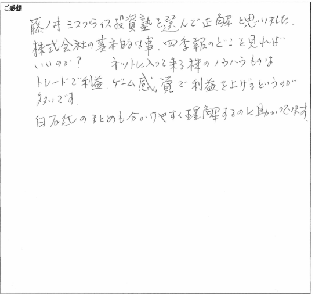 ご感想
藤ノ井ミスプライス投資塾を選んで正解と思いました。
株式会社の基本的な事、四季報のどこを見れば
いいのか? ネットに入って来る株のノウハウものは
トレードで利益 ゲーム感覚で利益を上げるというのが
多いです
白石統のまとめも分かりやすく理解するのに助かっています。